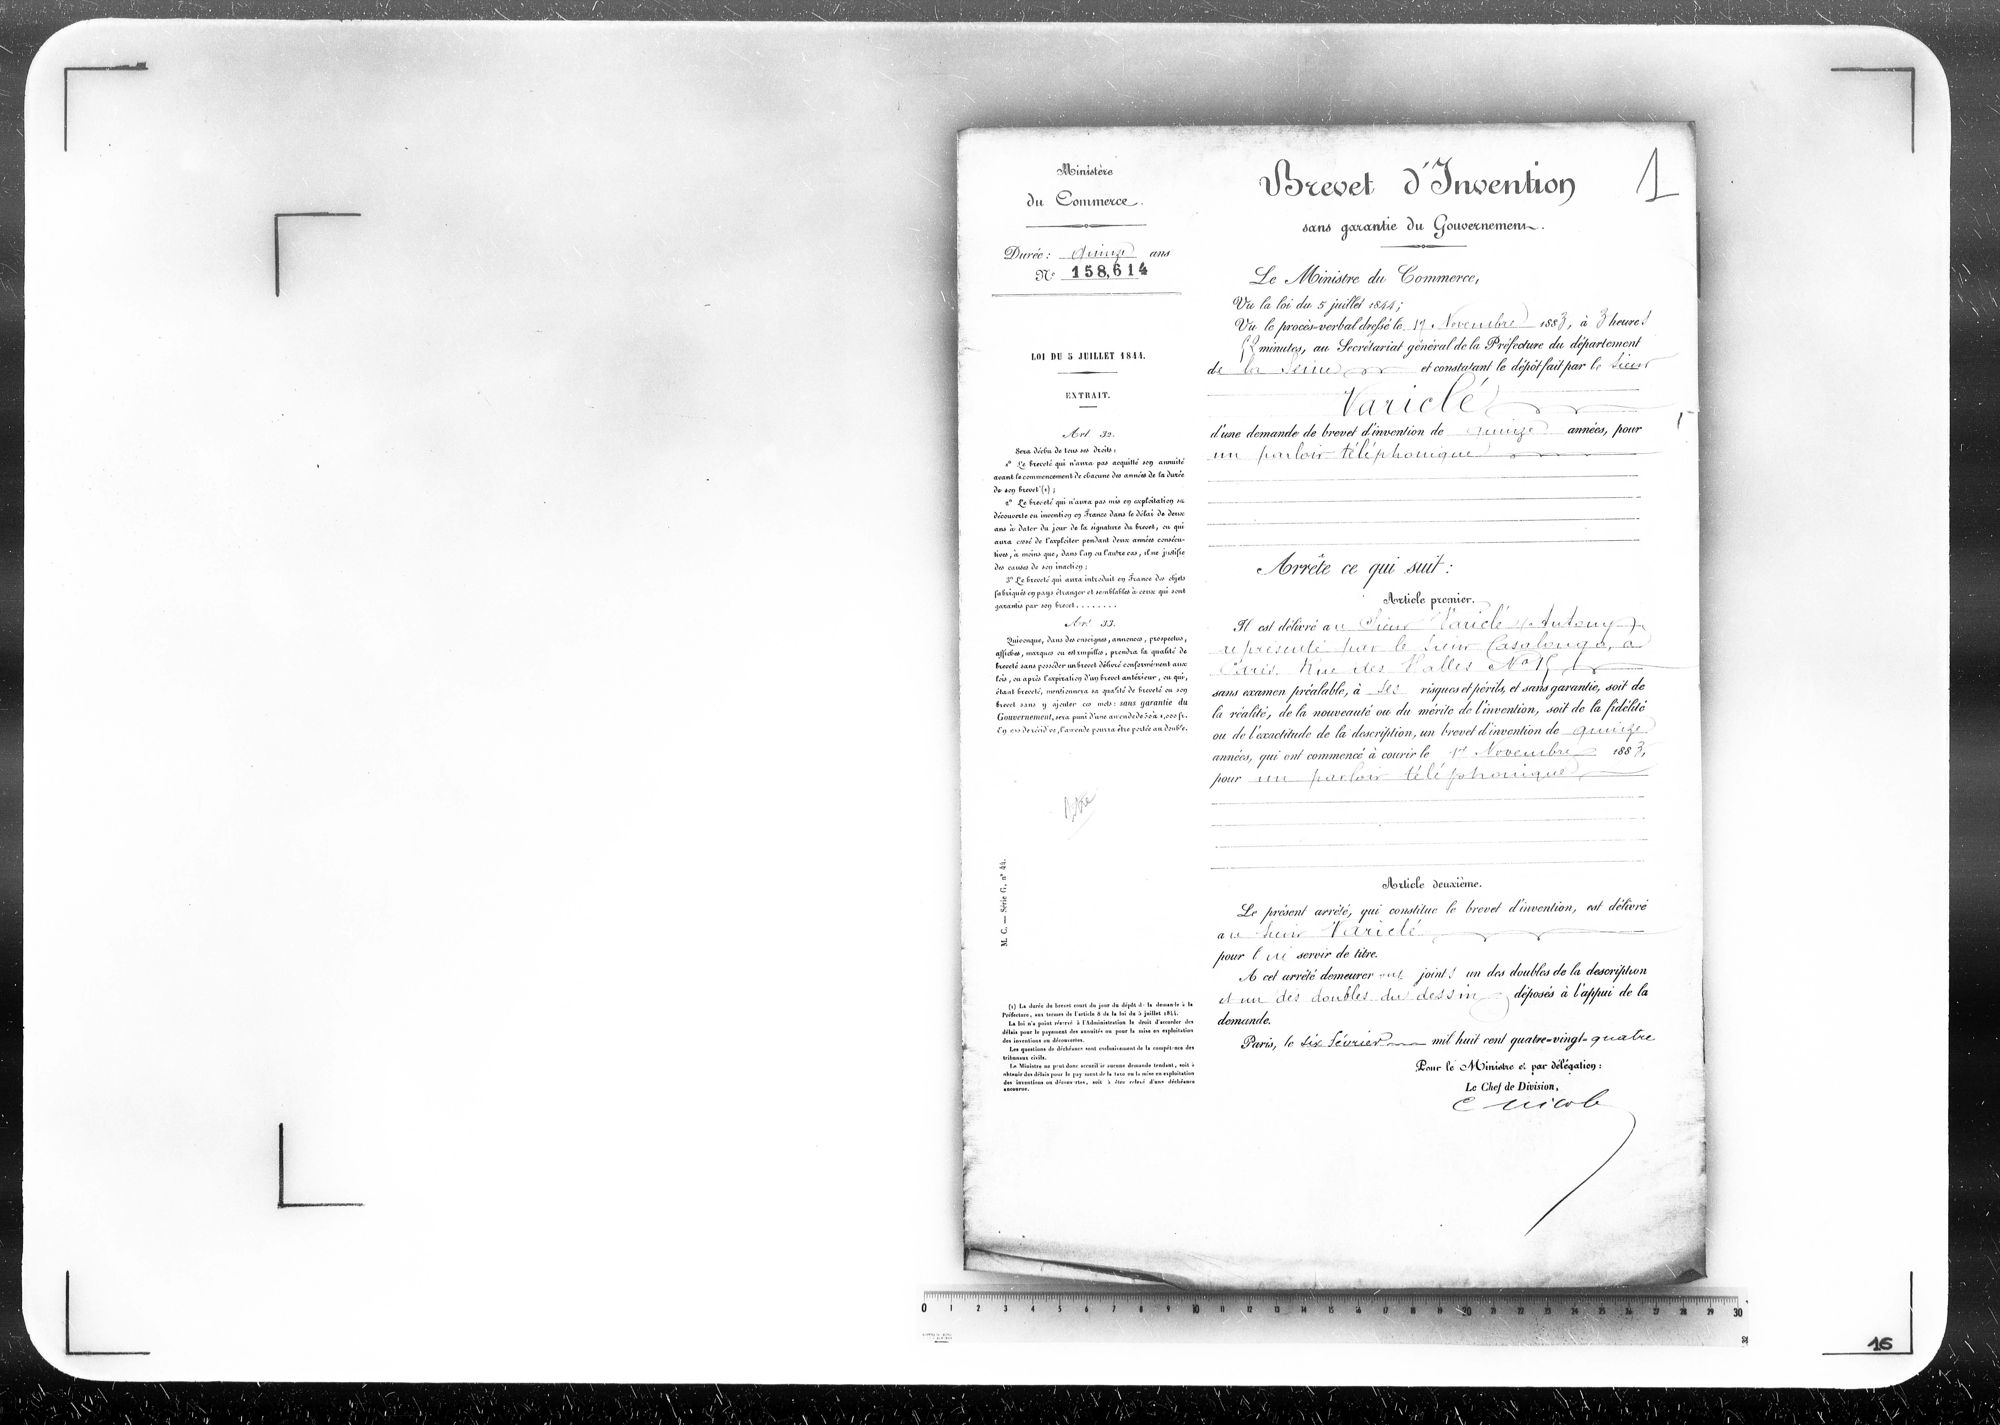 Ministère
du Commerce.
Durée : quinze ans
N° 158,614
LOI DU 5 JUILLET 1844.
EXTRAIT.
Art. 32.
Sera déchu de tous ses droits :
1° Le breveté qui n'aura pas acquitté son annuité
avant le commencement de chacune des années de la durée
de son brevet (1) ;
2° Le breveté qui n'aura pas mis en exploitation sa
découverte ou invention en France dans le délai de deux
ans à dater du jour de la signature du brevet, ou qui
aura cessé de l'exploiter pendant deux années consécu-
tives, à moins que, dans l'un ou l'autre cas, il ne justifie
des causes de son inaction ;
3° Le breveté qui aura introduit en France des objets
fabriqués en pays étranger et semblables à ceux qui sont
garantis par son brevet . . . . . . . .
Art. 33.
Quiconque, dans des enseignes, annonces, prospectus,
affiches, marques ou estampilles, prendra la qualité de
breveté sans posséder un brevet délivré conformément aux
lois, ou après l'expiration d'un brevet antérieur, ou qui,
étant breveté, mentionnera sa qualité de breveté ou son
brevet sans y ajouter ces mots : sans garantie du
Gouvernement, sera puni d'une amende de 50 à 1,000 fr.
En cas de récidive, l'amende pourra être portée au double.
M. C. — Série G, n° 44.
(1) La durée du brevet court du jour du dépôt de la demande à la
Préfecture, aux termes de l'article 8 de la loi du 5 juillet 1844.
La loi n'a point réservé à l'Administration le droit d'accorder des
délais pour le payement des annuités ou pour la mise en exploitation
des inventions ou découvertes.
Les questions de déchéance sont exclusivement de la compétence des
tribunaux civils.
Le Ministre ne peut donc accueillir aucune demande tendant, soit à
obtenir des délais pour le payement de la taxe ou la mise en exploitation
des inventions ou découvertes, soit à être relevé d'une déchéance
encourue.
Brevet d'Invention
1
sans garantie du Gouvernement.
Le Ministre du Commerce,
Vu la loi du 5 juillet 1844 ;
Vu le procès-verbal dressé le 17 Novembre 1883, à 3 heures
minutes, au Secrétariat général de la Préfecture du département
de la Seine et constatant le dépôt fait par le Sieur
Variclé
d'une demande de brevet d'invention de quinze années, pour
un parloir téléphonique
Arrête ce qui suit :
Article premier.
Il est délivré au Sieur Variclé (Antony),
représenté par le Sieur Casalonga, à
Paris, Rue des Halles No 15,
sans examen préalable, à ses risques et périls, et sans garantie, soit de
la réalité, de la nouveauté ou du mérite de l'invention, soit de la fidélité
ou de l'exactitude de la description, un brevet d'invention de quinze
années, qui ont commencé à courir le 17 Novembre 1883,
pour un parloir téléphonique
Article deuxième.
Le présent arrêté, qui constitue le brevet d'invention, est délivré
au Sieur Variclé
pour lui servir de titre.
A cet arrêté demeureront joints un des doubles de la description
et un des doubles du dessin déposés à l'appui de la
demande.
Paris, le six Février mil huit cent quatre-vingt-quatre
Pour le Ministre et par délégation :
Le Chef de Division,
0 1 2 3 4 5 6 7 8 9 10 11 12 13 14 15 16 17 18 19 20 21 22 23 24 25 26 27 28 29 30
16